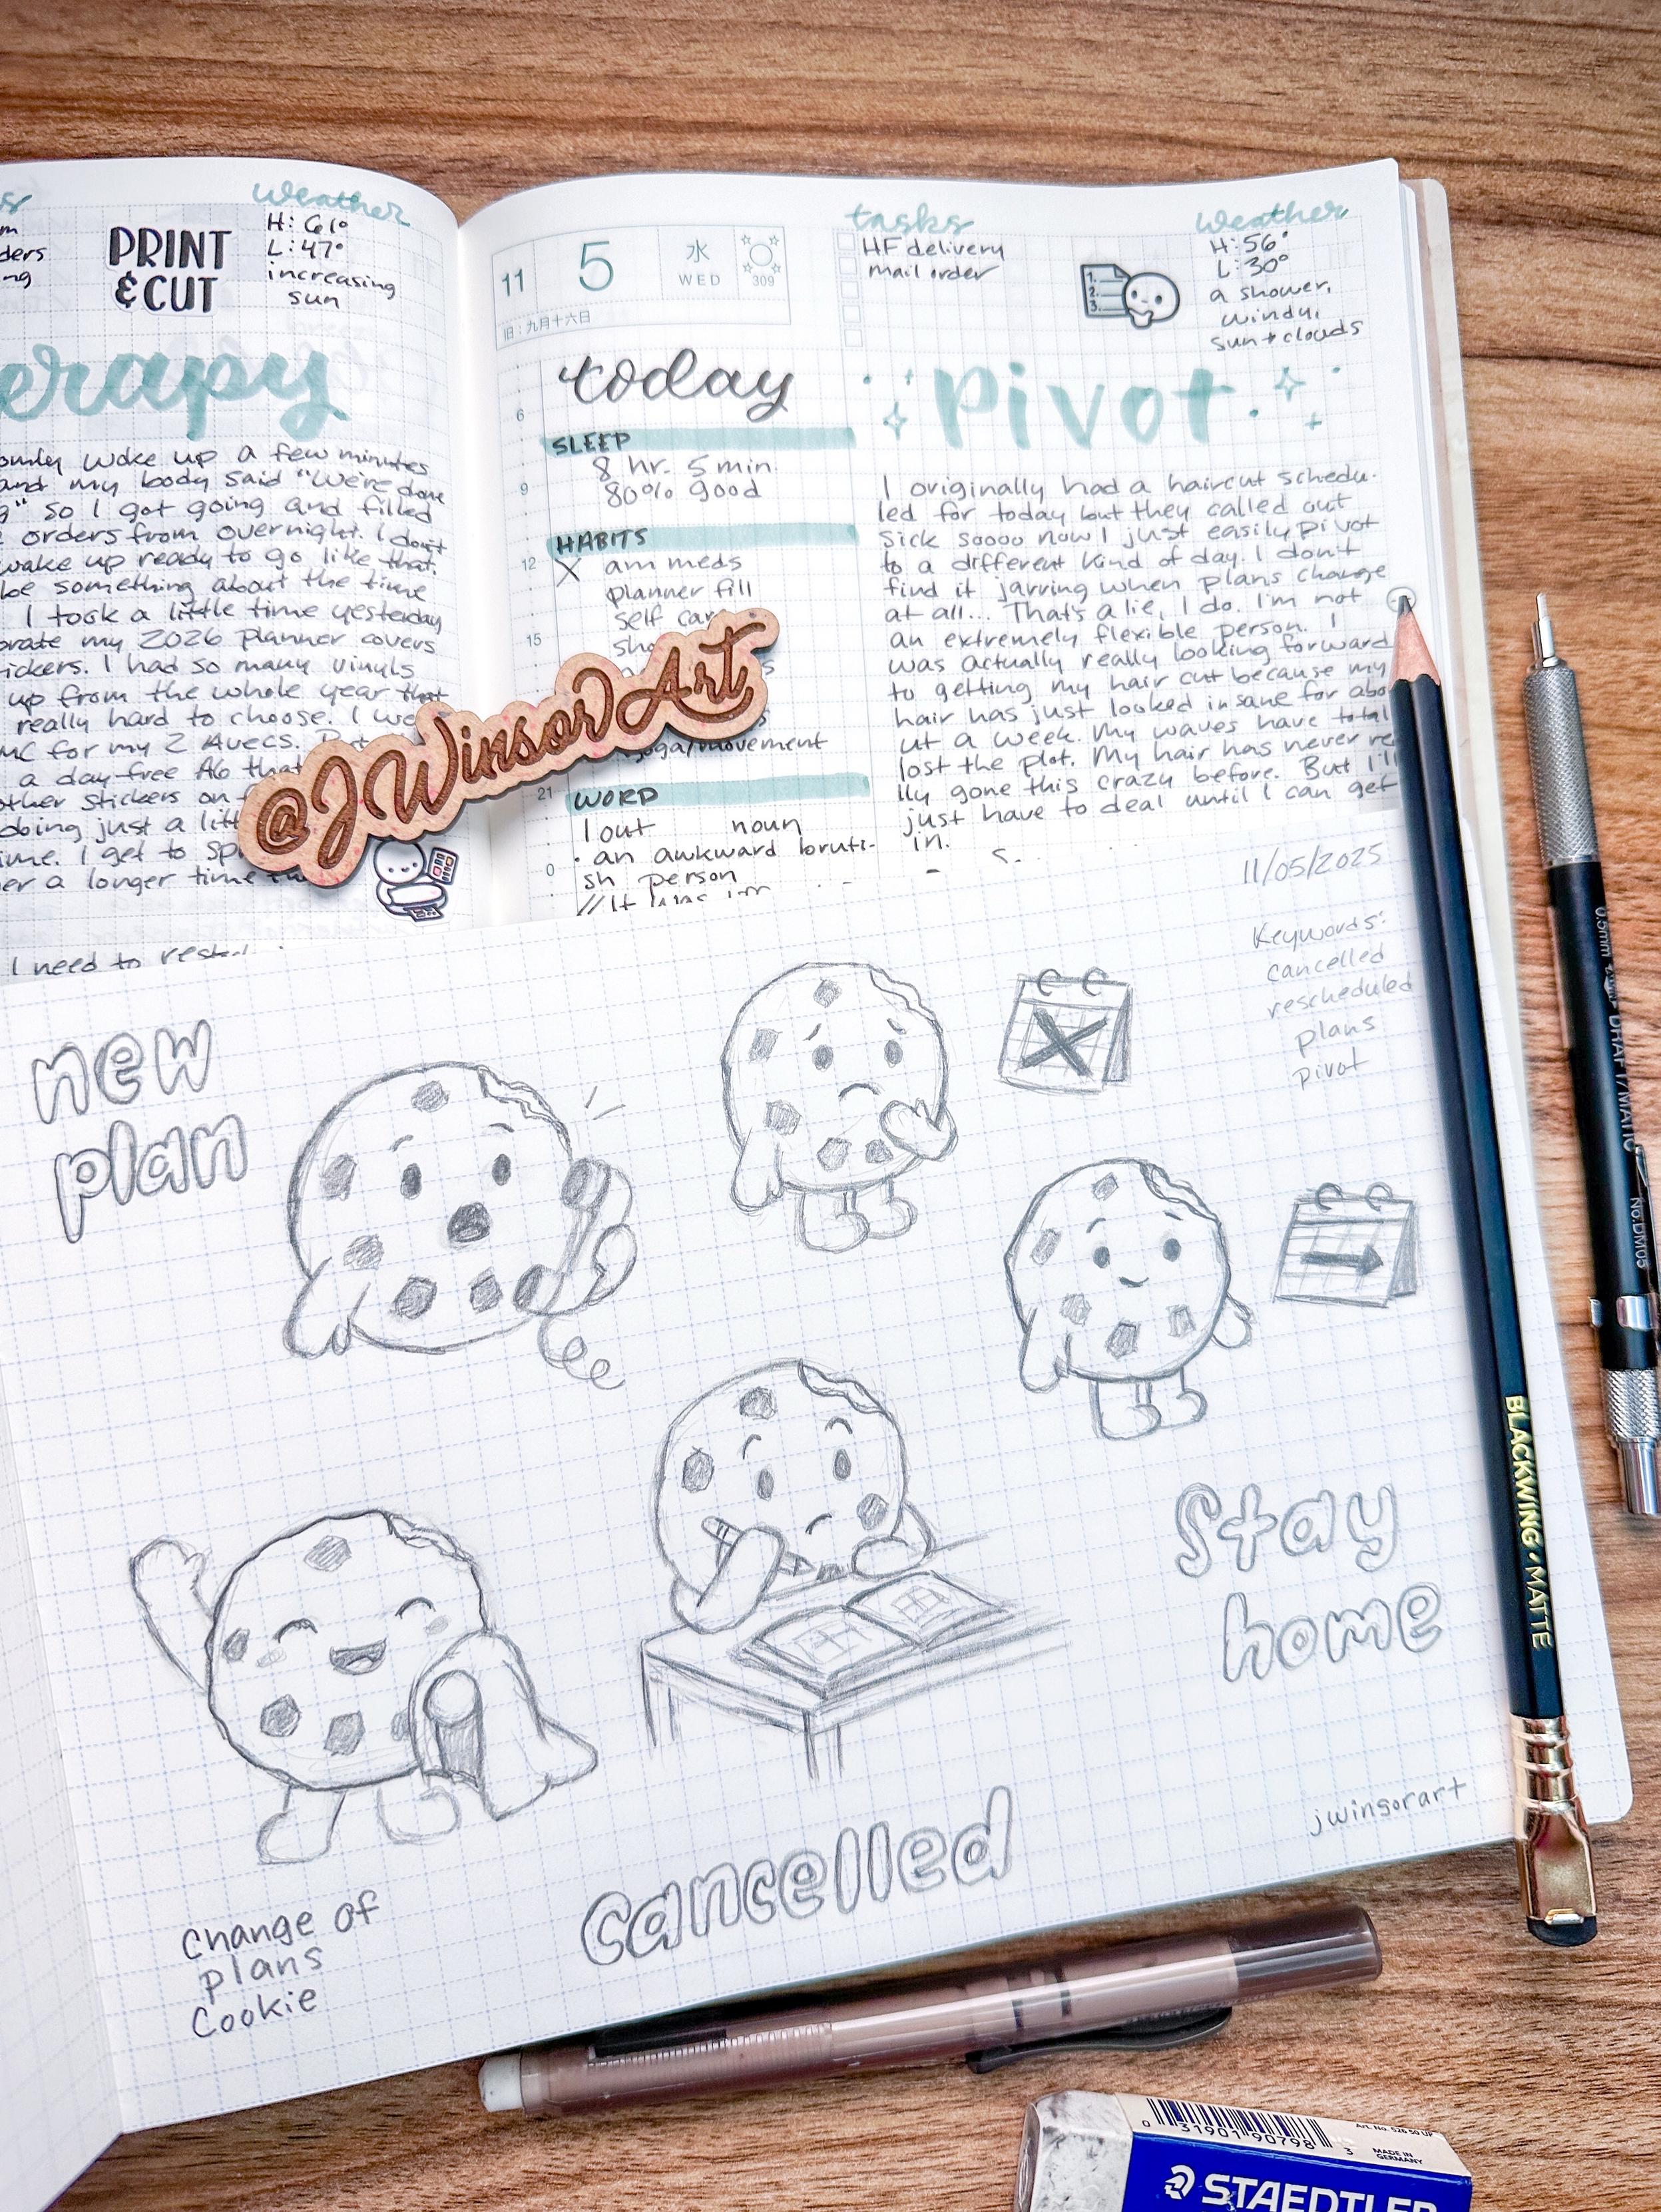 weather
H: 61°
L: 47°
increasing
sun
PRINT
& CUT
erapy
woke up a few minutes
and my body said "we're done
so I got going and filled
orders from overnight. I don't
wake up ready to go like that.
be something about the time
I took a little time yesterday
my 2026 planner covers
I had so many vinyls
up from the whole year that
really hard to choose. I
for my 2 Avecs.
a day-free A6 that
other stickers on
doing just a
time. I get to
a longer time
I need to
11
5
水
WED
309
旧:九月十六日
6
9
12
15
21
0
today
SLEEP
8 hr. 5 min.
80% good
HABITS
X am meds
planner fill
self
yoga/movement
WORD
lout noun
• an awkward bruti-
sh person
tasks
HF delivery
mail order
1.
2.
3.
weather
H: 56°
L: 30°
a shower,
windy,
sun + clouds
Pivot
I originally had a haircut schedu-
led for today but they called out
sick soooo now I just easily pivot
to a different kind of day. I don't
find it jarring when plans change
at all... That's a lie, I do. I'm not
an extremely flexible person. I
was actually really looking forward
to getting my hair cut because my
hair has just looked insane for abo
ut a week. My waves have
lost the plot. My hair has never
lly gone this crazy before. But I'll
just have to deal until I can get
in.
@JWinsorArt
11/05/2025
Keywords:
cancelled
rescheduled
plans
pivot
new
plan
Stay
home
Cancelled
Change of
plans
Cookie
jwinsorart
BLACKWING • MATTE
0.5mm
DRAFT/MATIC
No.DM05
0 31901 90798 3
Art. No. 526 50 UP
MADE IN
GERMANY
STAEDTLER